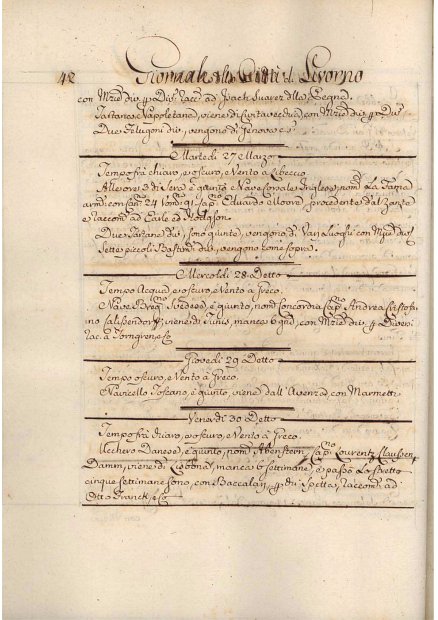 42 Giornale Livorno
con Mrzie div. p. Dis. racc. ad Isach Suarez
Tartana Napoletana, viene di Civitavechia, con Mrzie div. p. Dis.
Due Felugoni div. vengono di Genova
Martedi 27 Marzo
Tempo frà chiaro, e oscuro, Vento à Libeccio
è giunto e Nave Inglese, nom. La Fama
arm. con Can. 24 Uom. 91 Cap.no Eduardo Moore, procedente dal Zante
e raccom. ad Earle ed Hodgson
Due Tartane div. sono giunte, vengono di Varj Luoghi con Mrzie div.
Sette piccoli Bastim. div. vengono come sopra
Mercoldi 28 Detto
Tempo Acqua, e oscuro, Vento à Greco.
Nave Svedese, è giunto, nom. Concordia Cap.no Andrea Cristofa
viene di Tunis, manca 6 gni, con Mrzie div. p. Diver.
rac. a
Giovedi 29 Detto
Tempo oscuro, e Vento à Greco
Navicello Toscano, è giunto, viene dall' Avenza con Marmetti
Venerdi 30 Detto
Tempo frà chiaro, e oscuro, e Vento à Greco.
Ucchero Danese, è giunto, nom. Abenstern, Cap.no Lourentz Claussen
Damm, viene di Lisbona, manca 6 settimane, e passò Lo Stretto
cinque settimane sono, con Baccalari, p. di Spetta, raccom. ad
Otto Franck, e C.